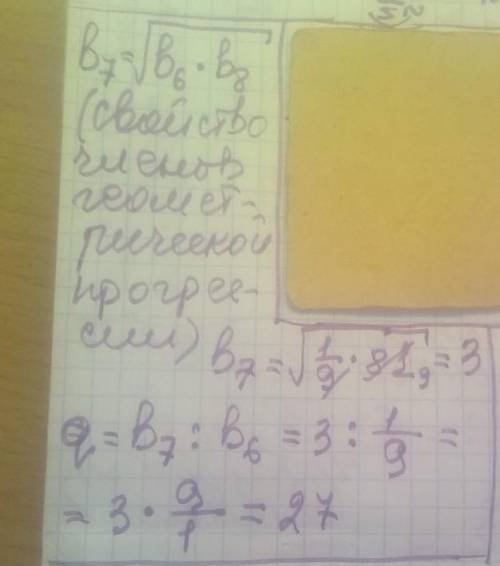 b₇=√b₆·b₈
(свойство
членов
геомет-
рической
прогрес-
сии)
b₇=√1/9·81₉=3
q=b₇:b₆=3:1/9=
=3·9/1=27